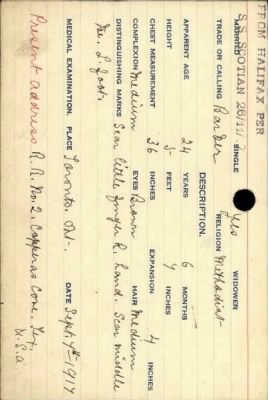 FROM HALIFAX PER
S.S. SCOTIAN 26/11/17
MARRIED SINGLE Yes WIDOWER
TRADE OR CALLING Barber RELIGION Methodist
DESCRIPTION.
APPARENT AGE 24 YEARS 6 MONTHS
HEIGHT 5 FEET 7 INCHES
CHEST MEASUREMENT 36 INCHES EXPANSION 4 INCHES
COMPLEXION Medium EYES Brown HAIR Medium
DISTINGUISHING MARKS Scar little finger R. hand. Scar middle
L. foot.
MEDICAL EXAMINATION. PLACE Toronto. Ont. DATE Sept. 7th 1917
Present address R.R. No. 2. Copperas Cove. Tex.
U.S.A